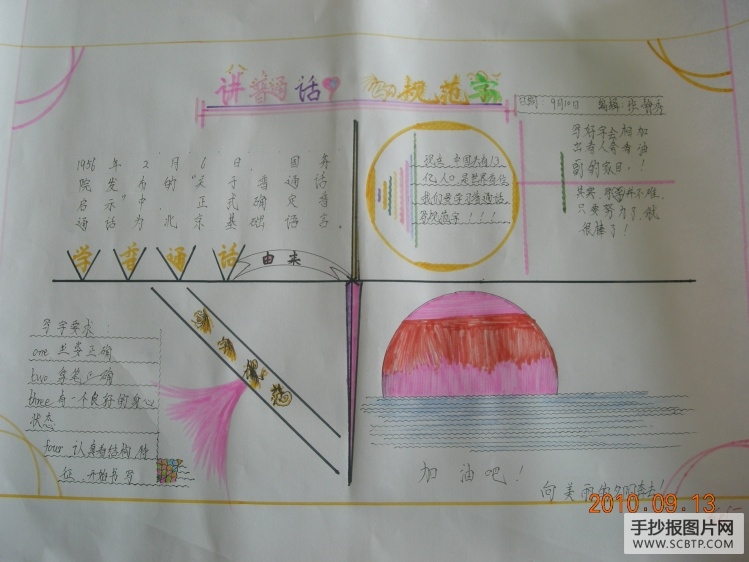 讲普通话
写规范字
日期：9月10日 编辑：张静秀
1956年2月6日，国务
院发布的“关于普通话
启示”中，正式确定普
通话为北京基础语言。
学普通话
由来
现在，中国共有13
亿人口，是世界首位
我们要学习普通话，
写规范字！！！
写好字会相加
出看人会看油
到的夸目！！
其实，写字并不难，
只要努力了，就
很棒了！
写字要求
one 坐姿正确
two 拿笔正确
three 有一个良好的身心
状态
four 认真看结构、特
征，开始书写
写字规范
加油吧！
向美丽的夕阳奔去！
2010.09.13
手抄报图片网
WWW.SCBTP.COM